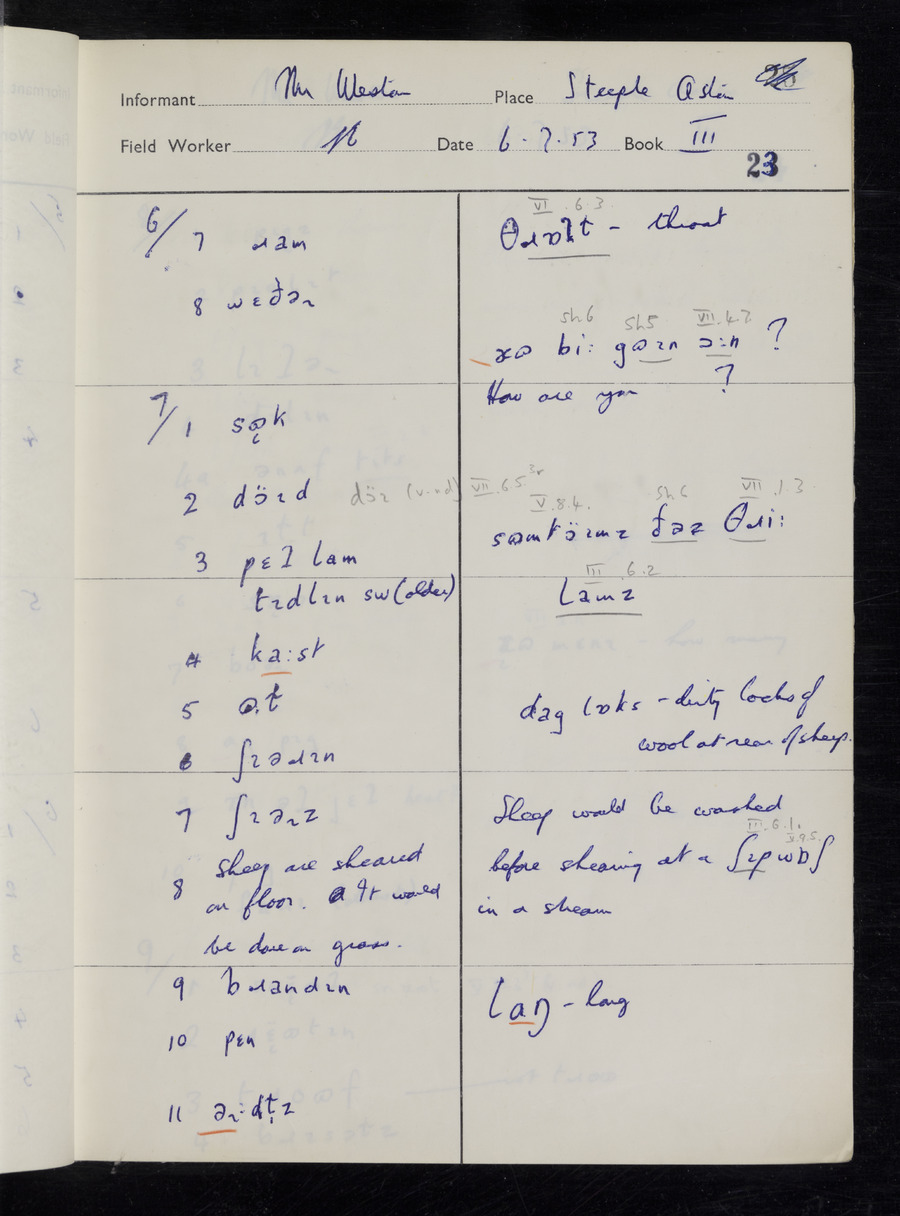 Informant Mr Weston Place Steeple Aston
Field Worker Date 6.7.53 Book III
23
6/ 7 ɹam
8 wɛðəɹ
7/ 1 sɷk
2 dö̤ɪd
3 pɛɪ lam
tɪdlɪn sw (older)
4 ka:st
5
6 ʃɪəɹɪn
7 ʃɪəɹz
8 Sheep are sheared
on floor. It would
be done on grass.
9 bɹandɪn
10 pɛn
11
VI.6.3.
θɹɒʔt - throat
Sh6 Sh5 VII.4.7
bi: gɷɪn ɔ:n ?
How are you ?
V.8.4. Sh6 VII.1.3
sɷmtöɪmz ðəz θɹi:
III.6.2
lamz
dag lɒks - dirty locks of
wool at rear of sheep.
Sheep would be washed
III.6.1.
V.9.5.
before shearing at a ʃɪpwɒʃ
in a stream
laŋ - long